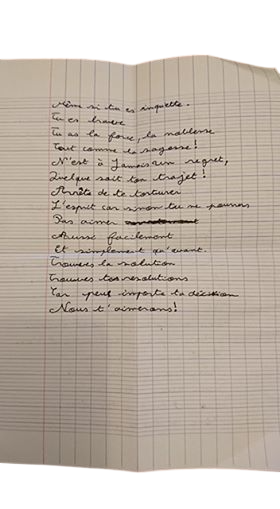 Même si tu es inquette.
Tu es brave
Tu as la force, la noblesse
Tout comme la sagesse!
N'est à Jamais un regret,
Quelque soit ton trajet!
Arrête de te torturer
L'esprit car sinon tu ne pourras
Pas aimer
Aussi facilement
Et simplement qu'avant.
Trouves la solution
Trouves tes resolutions
Car peut importe ta décision
Nous t'aimerons!